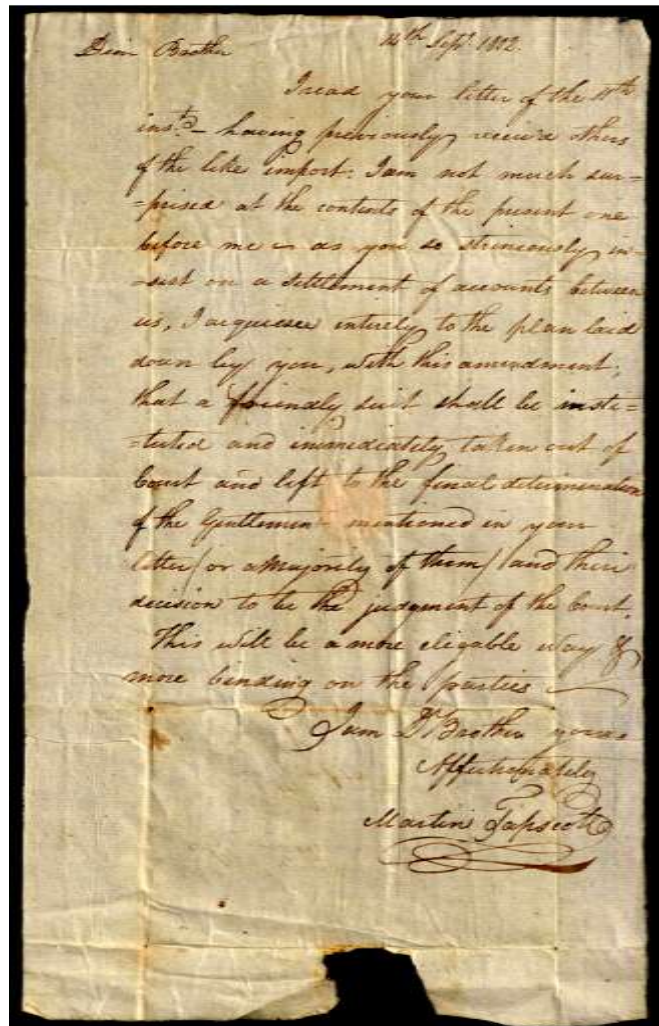 Dear Brother 14th Sept. 1802.
I read your letter of the 11th
inst. – having previously receivd others
of the like import. I am not much sur-
-prised at the contents of the present one
before me – as you so strineously in-
-sist on a settlement of accounts between
us, I acquiesce intirely to the plan laid
down by you, with this amendment;
that a friendly suit shall be insti=
=tuted and immediately taken out of
Court and left to the final determination
of the Gentlemen mentioned in your
letter (or a Majority of them) and their
decision to be the judgment of the Court.
This will be a more eligable way &
more binding on the parties –
I am Dr. Brother yours
Affectionately
Martin Tapscott